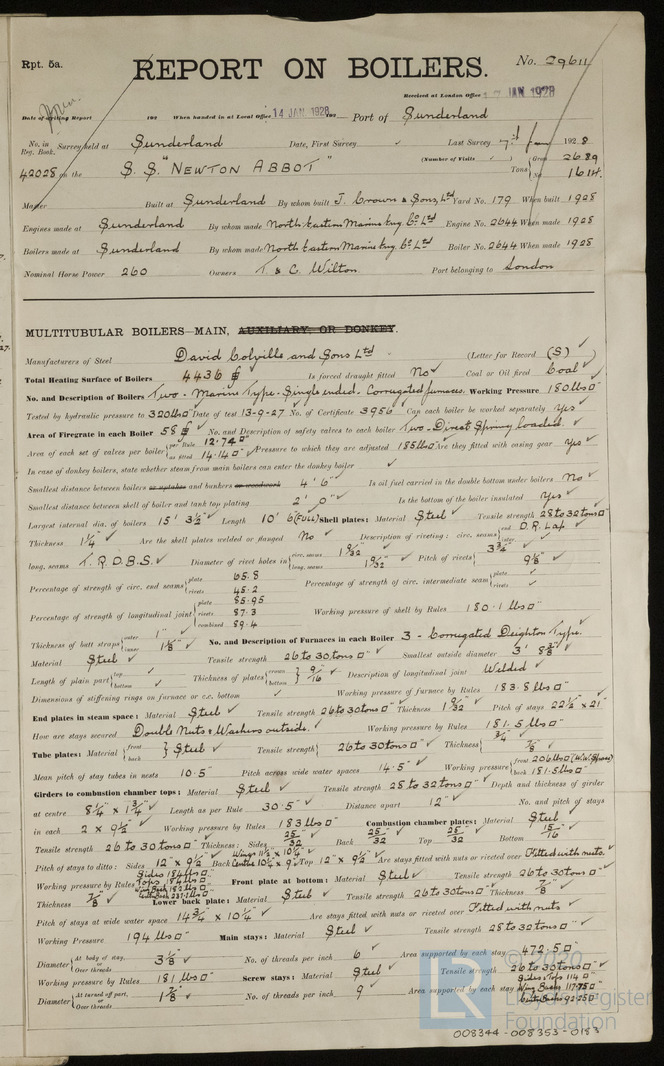 Rpt. 5a.
REPORT ON BOILERS.
No. 29611
Received at London Office JAN 1928
Date of writing Report 192 When handed in at Local Office 14 JAN 1928 Port of Sunderland
No. in Reg. Book. Survey held at Sunderland Date, First Survey Last Survey 7th Jan 1928
(Number of Visits ) Gross 2689
42028 on the S.S. "NEWTON ABBOT" Tons Net 1614
Master Built at Sunderland By whom built J. Crown & Sons Ltd Yard No. 179 When built 1928
Engines made at Sunderland By whom made North Eastern Marine Eng. Co. Ltd Engine No. 2644 When made 1928
Boilers made at Sunderland By whom made North Eastern Marine Eng. Co. Ltd Boiler No. 2644 When made 1928
Nominal Horse Power 260 Owners T. & C. Wilton. Port belonging to London
MULTITUBULAR BOILERS—MAIN, AUXILIARY, OR DONKEY.
Manufacturers of Steel David Colville and Sons Ltd (Letter for Record (S) )
Total Heating Surface of Boilers 4436 Is forced draught fitted No Coal or Oil fired Coal
No. and Description of Boilers Two - Marine Type - Single ended - Corrugated furnaces. Working Pressure 180 lbs□"
Tested by hydraulic pressure to 320 lbs□" Date of test 13-9-27 No. of Certificate 3956 Can each boiler be worked separately Yes
Area of Firegrate in each Boiler 58 No. and Description of safety valves to each boiler Two - Direct Spring loaded.
Area of each set of valves per boiler per Rule 12.74□" as fitted 14.14□" Pressure to which they are adjusted 185 lbs□" Are they fitted with easing gear Yes
In case of donkey boilers, state whether steam from main boilers can enter the donkey boiler
Smallest distance between boilers or uptakes and bunkers or woodwork 4' 6" Is oil fuel carried in the double bottom under boilers No
Smallest distance between shell of boiler and tank top plating 2' 0" Is the bottom of the boiler insulated Yes
Largest internal dia. of boilers 15' 3½" Length 10' 6 (FULL) Shell plates: Material Steel Tensile strength 28 to 32 tons□"
Thickness 1¼" Are the shell plates welded or flanged No Description of riveting: circ. seams end D.R. Lap. inter.
long. seams T.R.D.B.S. Diameter of rivet holes in circ. seams 1 9/32 long. seams 1 9/32 Pitch of rivets 3¾" 9⅛"
Percentage of strength of circ. end seams plate 65.8 rivets 45.2 Percentage of strength of circ. intermediate seam plate rivets
Percentage of strength of longitudinal joint plate 85.95 rivets 87.3 combined 89.4 Working pressure of shell by Rules 180.1 lbs□"
Thickness of butt straps outer 1" inner 1⅛" No. and Description of Furnaces in each Boiler 3 - Corrugated Deighton Type.
Material Steel Tensile strength 26 to 30 tons□" Smallest outside diameter 3' 8⅜"
Length of plain part top bottom Thickness of plates crown bottom 9/16 Description of longitudinal joint Welded
Dimensions of stiffening rings on furnace or c.c. bottom Working pressure of furnace by Rules 183.8 lbs□"
End plates in steam space: Material Steel Tensile strength 26 to 30 tons□" Thickness 1 9/32 Pitch of stays 22½" x 21"
How are stays secured Double Nuts & Washers outside. Working pressure by Rules 181.5 lbs□"
Tube plates: Material front back Steel Tensile strength 26 to 30 tons□" Thickness ¾" ⅞"
Mean pitch of stay tubes in nests 10.5" Pitch across wide water spaces 14.5" Working pressure front 206 lbs□" (W.W. Space) back 181.5 lbs□"
Girders to combustion chamber tops: Material Steel Tensile strength 28 to 32 tons□" Depth and thickness of girder
at centre 8¼" x 1¾" Length as per Rule 30.5" Distance apart 12" No. and pitch of stays
in each 2 x 9½" Working pressure by Rules 183 lbs□" Combustion chamber plates: Material Steel
Tensile strength 26 to 30 tons□" Thickness: Sides 25/32 Back 25/32 Top 25/32 Bottom 15/16
Pitch of stays to ditto: Sides 12" x 9½" Back Wings 11½ x 10¼" Centre 10¼ x 9" Top 12" x 9½" Are stays fitted with nuts or riveted over Fitted with nuts.
Working pressure by Rules Sides 184 lbs□" Tops 184 lbs□" Front plate at bottom: Material Steel Tensile strength 26 to 30 tons□"
Thickness ⅞" Lower back plate: Material Steel Tensile strength 26 to 30 tons□" Thickness ⅞"
Pitch of stays at wide water space 14¾" x 10¼" Are stays fitted with nuts or riveted over Fitted with nuts
Working Pressure 194 lbs□" Main stays: Material Steel Tensile strength 28 to 32 tons□"
Diameter At body of stay, or Over threads 3⅜" No. of threads per inch 6 Area supported by each stay 472.5□"
Working pressure by Rules 181 lbs□" Screw stays: Material Steel Tensile strength 26 to 30 tons□"
Diameter At turned off part, or Over threads 1⅞" No. of threads per inch 9 Area supported by each stay Sides & Tops 114□" Wing Backs 117.75□" Cent. Backs 92.25□"
© 2020
Lloyd's Register
Foundation
LR
008344-008353-0183